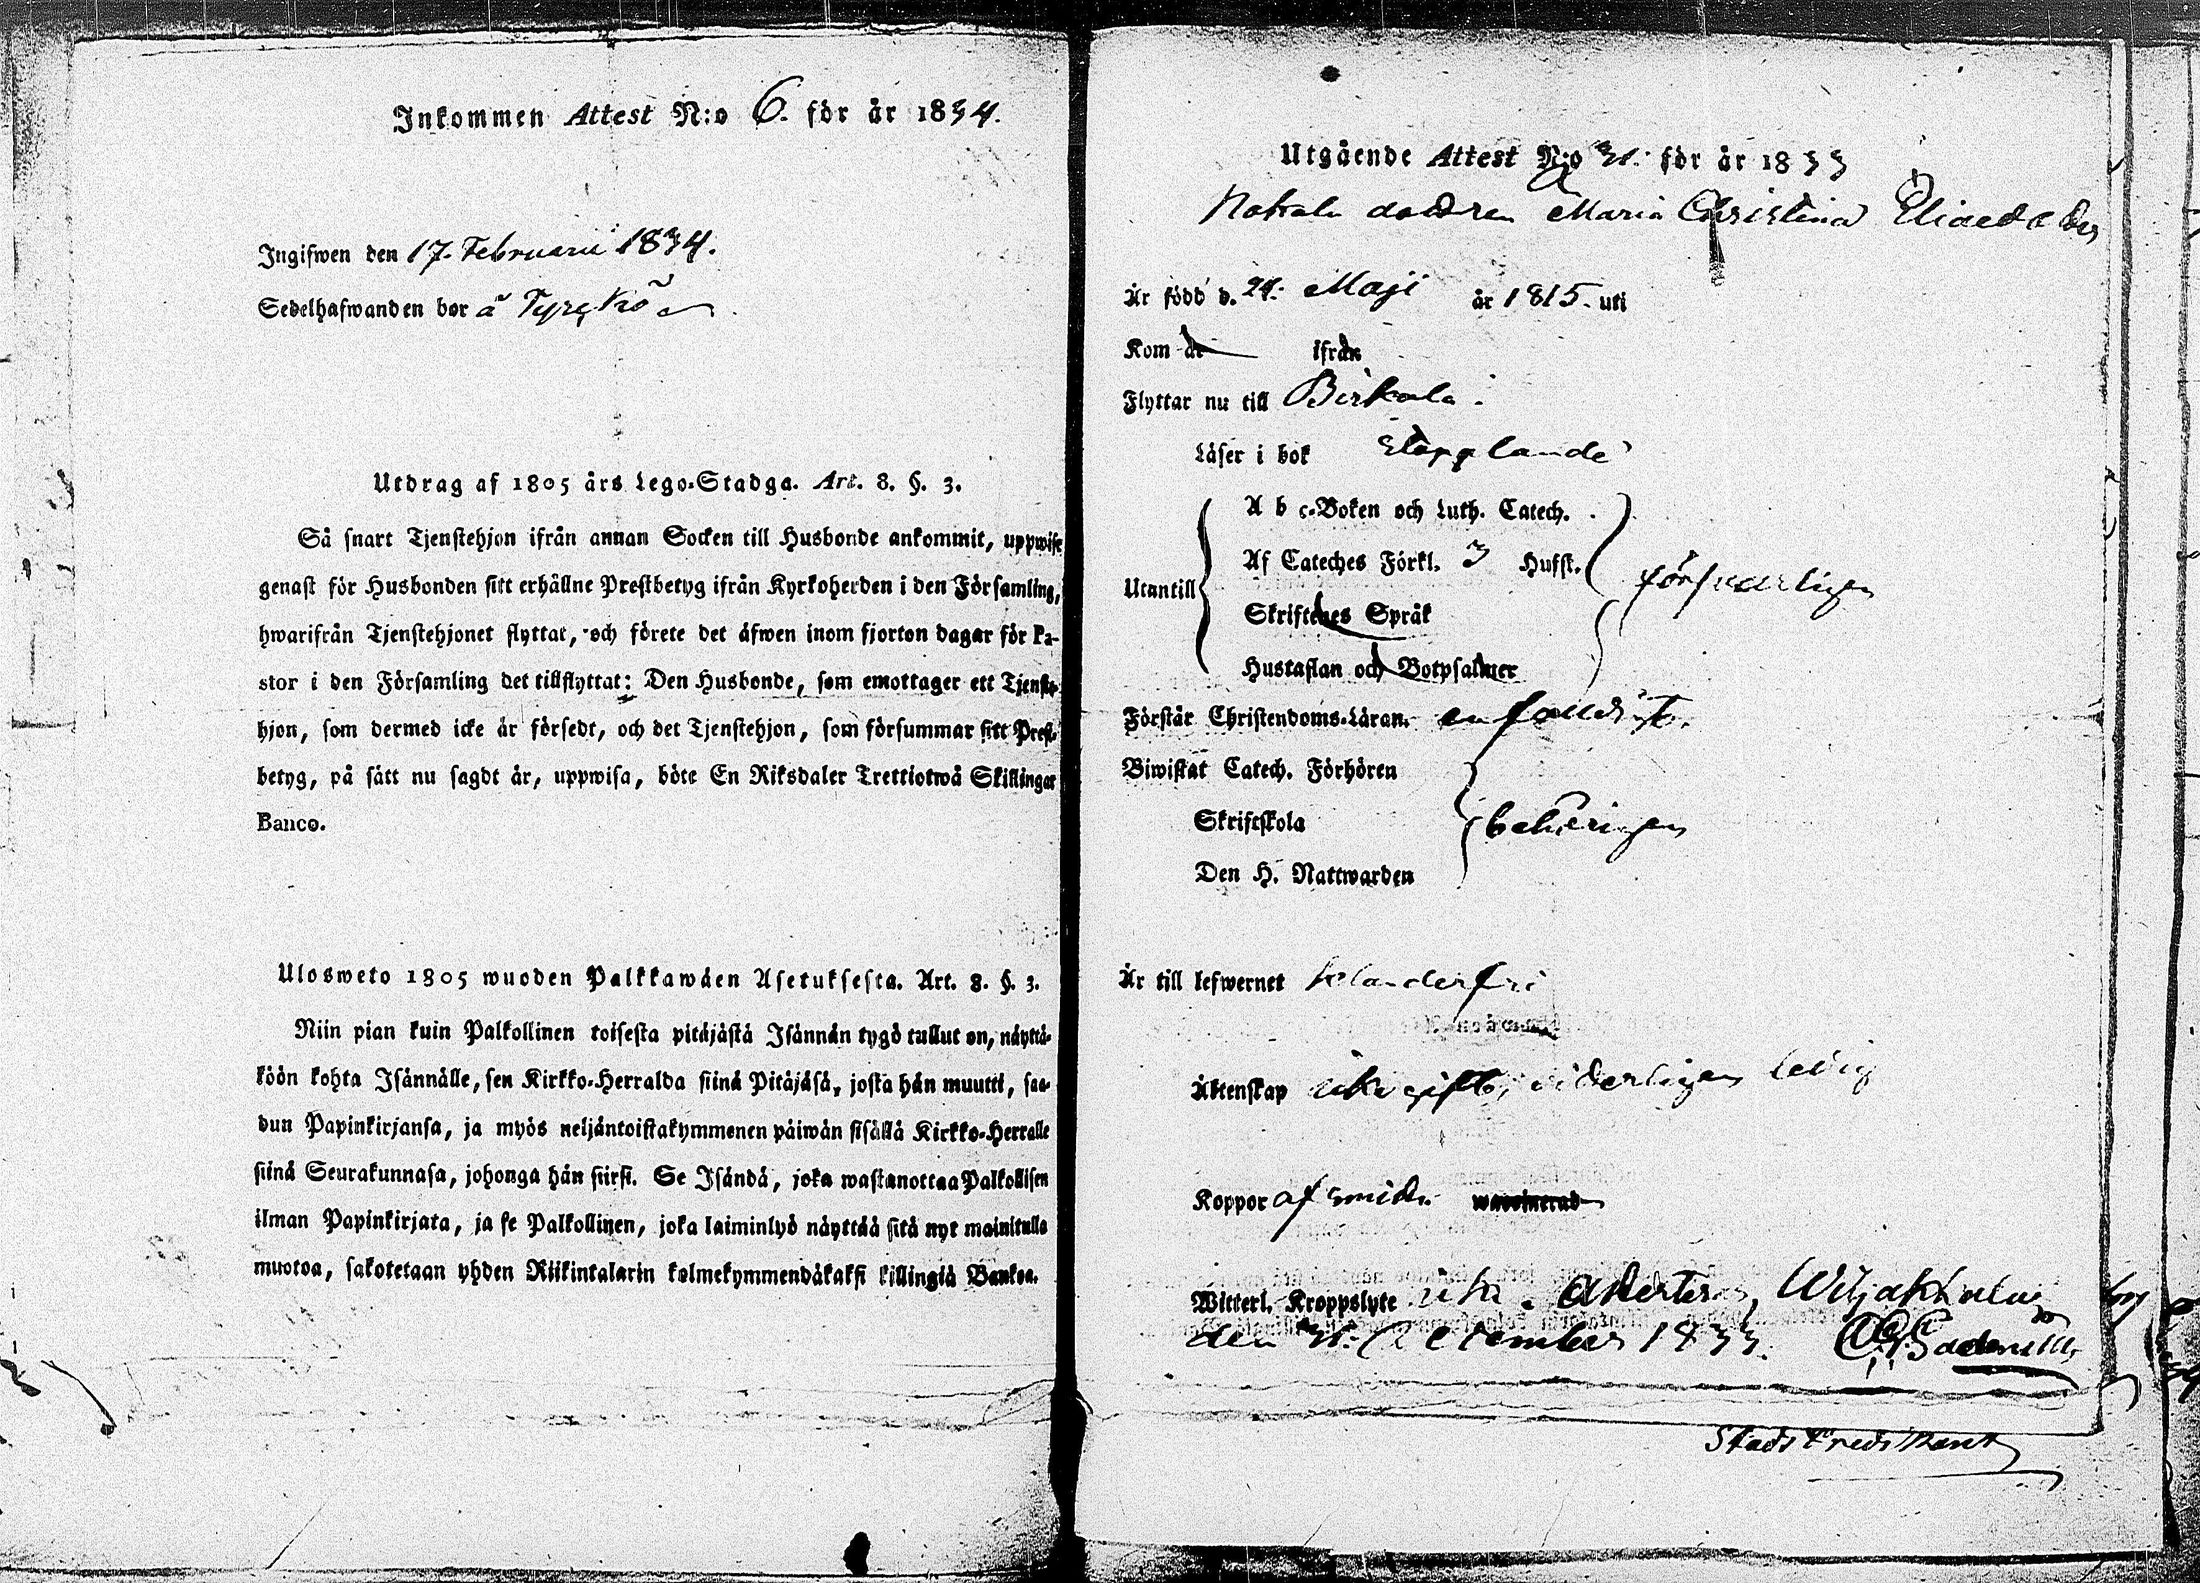 Inkommen Attest N:o 6. för år 1834.
Ingifwen den 17. Februarii 1834.
Sedelhafwanden bor å Tyrckö
Utdrag af 1805 års Lego-Stadga. Art. 8. §. 3.
Så snart Tjenstehjon ifrån annan Socken till Husbonde ankommit, uppwise
genast för Husbonden sitt erhållne Prestbetyg ifrån Kyrkoherden i den Församling,
hwarifrån Tjenstehjonet flyttat, och förete det äfwen inom fjorton dagar för Pa-
stor i den Församling det tillflyttat: Den Husbonde, som emottager ett Tjenste-
hjon, som dermed icke är försedt, och det Tjenstehjon, som försummar sitt Prest-
betyg, på sätt nu sagdt är, uppwisa, böte En Riksdaler Trettiotwå Skillingar
Banco.
Ulosweto 1805 wuoden Palkkawäen Asetuksesta. Art. 8. §. 3.
Niin pian kuin Palkollinen toisesta pitäjästä Isännän tygö tullut on, näyttä-
köön kohta Isännälle, sen Kirkko-Herralda siinä Pitäjäsä, josta hän muutti, saa-
dun Papinkirjansa, ja myös neljäntoistakymmenen päiwän sisällä Kirkko-Herralle
siinä Seurakunnasa, johonga hän siirsi. Se Isändä, joka wastanottaa Palkollisen
ilman Papinkirjata, ja se Palkollinen, joka laiminlyö näyttää sitä nyt mainitulla
muotoa, sakotetaan yhden Riikintalarin kolmekymmendäkaksi killingiä Bankoa.
Utgående Attest N:o 31. för år 1833
Maria Christina
Är född d. 24. Maji år 1815. uti
Kom år ifrån
Flyttar nu till Birkala.
Läser i bok
A b c-Boken och Luth. Catech.
Af Cateches Förkl. 3 Hufst.
Utantill försvarligen
Skriftenes Språk
Hustaflan och Botpsalmer
Förstår Christendoms-Läran
Biwistat Catech. Förhören
Skriftskola behörigen
Den H. Nattwarden
Är till lefwernet klanderfri
Äktenskap icke gift, lediig
Koppor af
Witterl. Kroppslyte icke. Attesterar,
den 31. December 1833.